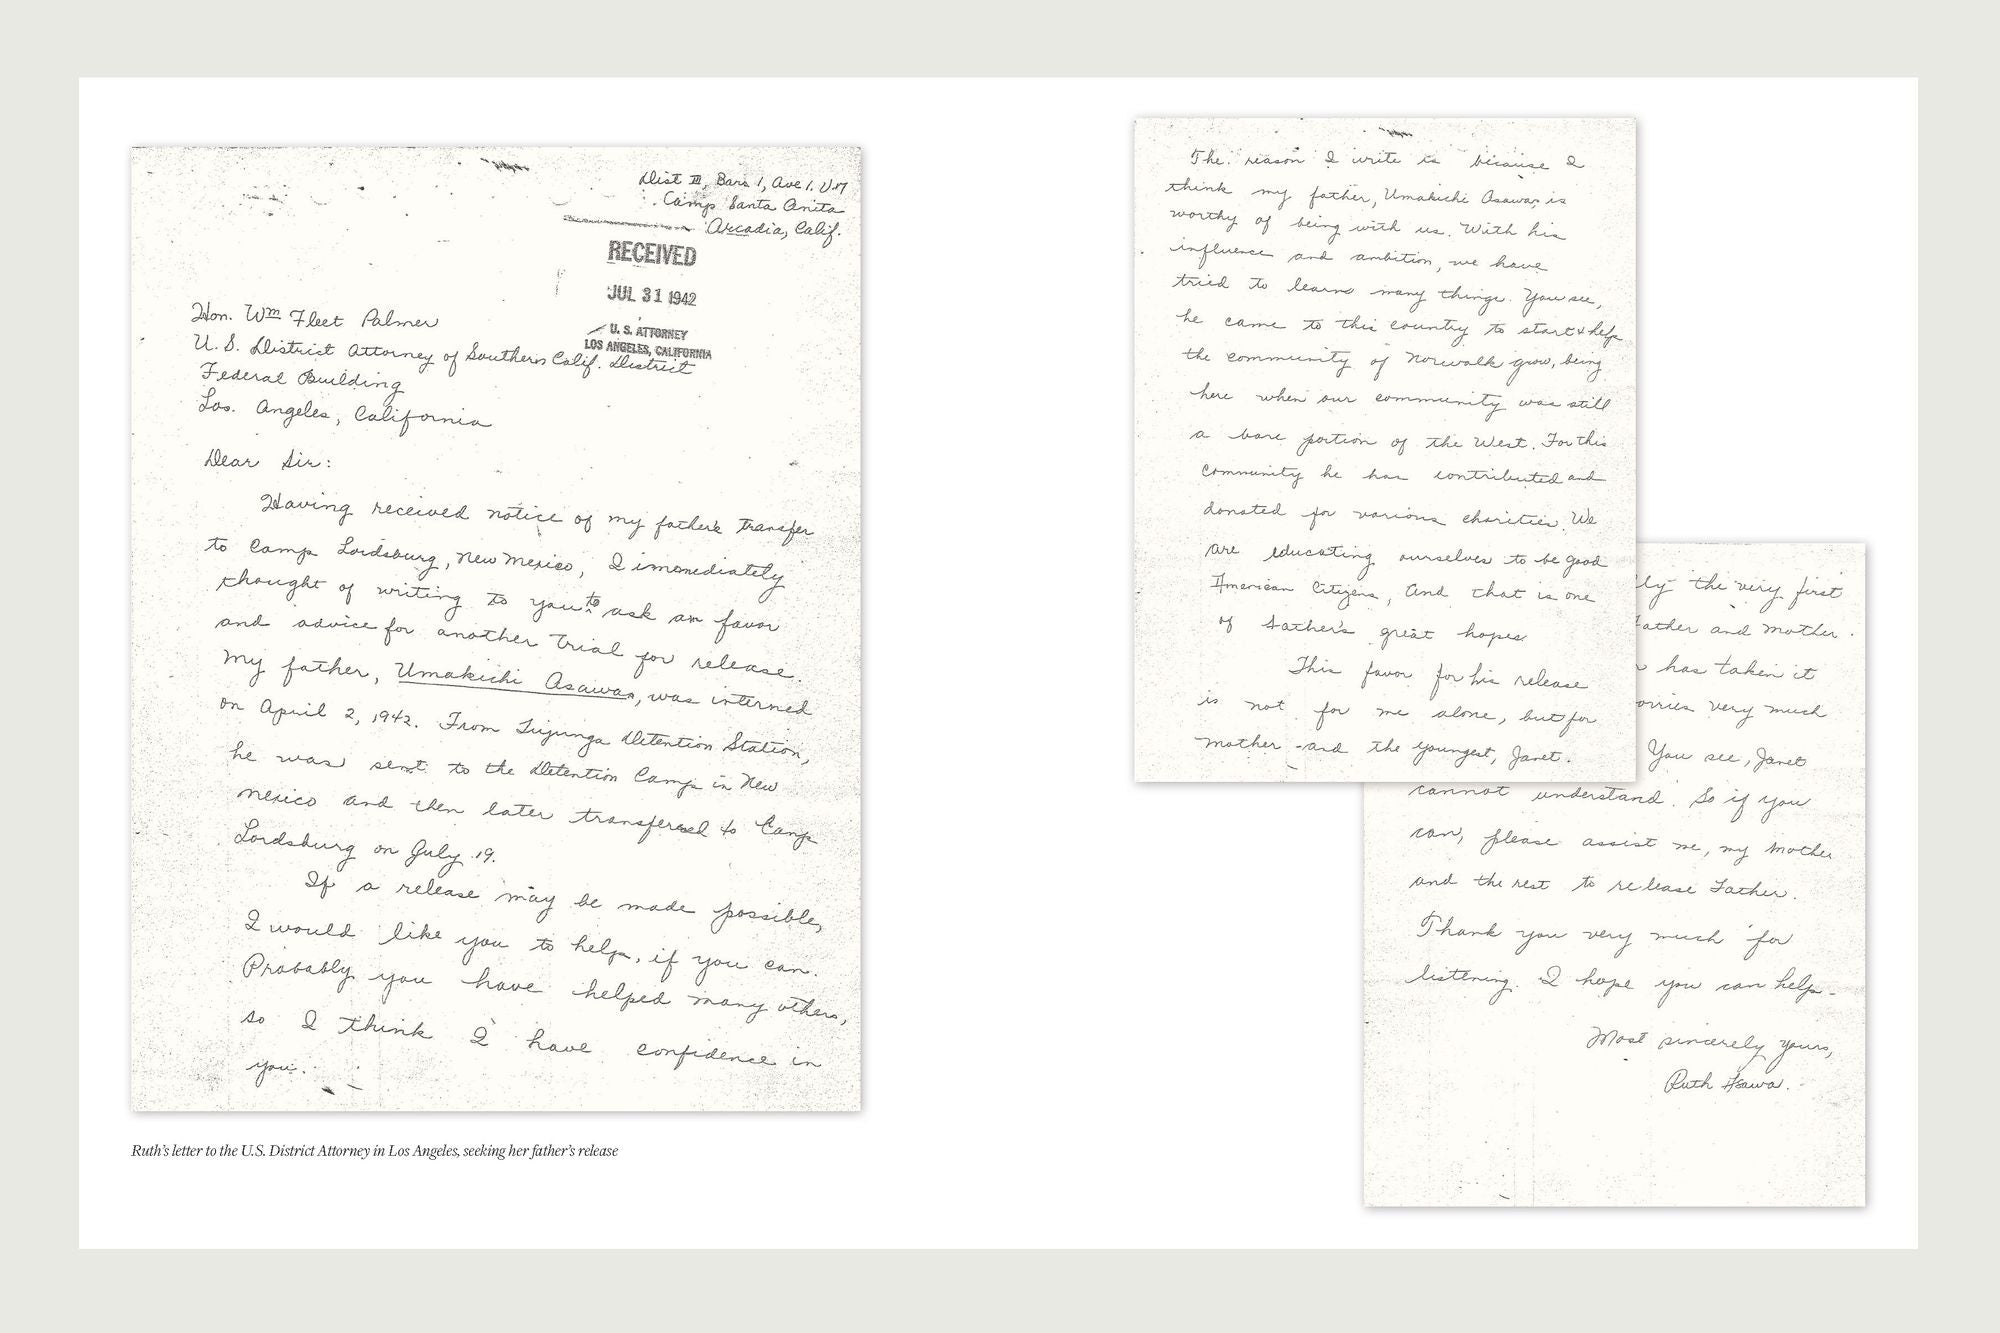 Dist III, Bars 1, Ave 1. U.M
Camp Santa Anita
Arcadia, Calif.
RECEIVED
JUL 31 1942
U. S. ATTORNEY
LOS ANGELES, CALIFORNIA
Hon. Wm Fleet Palmer
U. S. District Attorney of Southern Calif. District
Federal Building
Los. Angeles, California
Dear Sir:
Having received notice of my father's transfer
to Camp Lordsburg, New Mexico, I immediately
thought of writing to you to ask a favor
and advice for another trial for release.
My father, Umakichi Asawa, was interned
on April 2, 1942. From Tujunga Detention Station,
he was sent to the Detention Camp in New
Mexico and then later transfered to Camp
Lordsburg on July 19.
If a release may be made possible,
I would like you to help, if you can.
Probably you have helped many others,
so I think I have confidence in
you.
Ruth's letter to the U.S. District Attorney in Los Angeles, seeking her father's release
The reason I write is because I
think my father, Umakichi Asawa, is
worthy of being with us. With his
influence and ambition, we have
tried to learn many things. You see,
he came to this country to start & help
the community of Norwalk grow, being
here when our community was still
a bare portion of the West. For this
community he has contributed and
donated for various charities. We
are educating ourselves to be good
American Citizens, And that is one
of Father's great hopes.
This favor for his release
is not for me alone, but for
mother and the youngest, Janet.
ly the very first
Father and Mother.
has taken it
orries very much
You see, Janet
cannot understand. So if you
can, please assist me, my Mother
and the rest to release Father.
Thank you very much for
listening. I hope you can help.
Most sincerely yours,
Ruth Asawa.